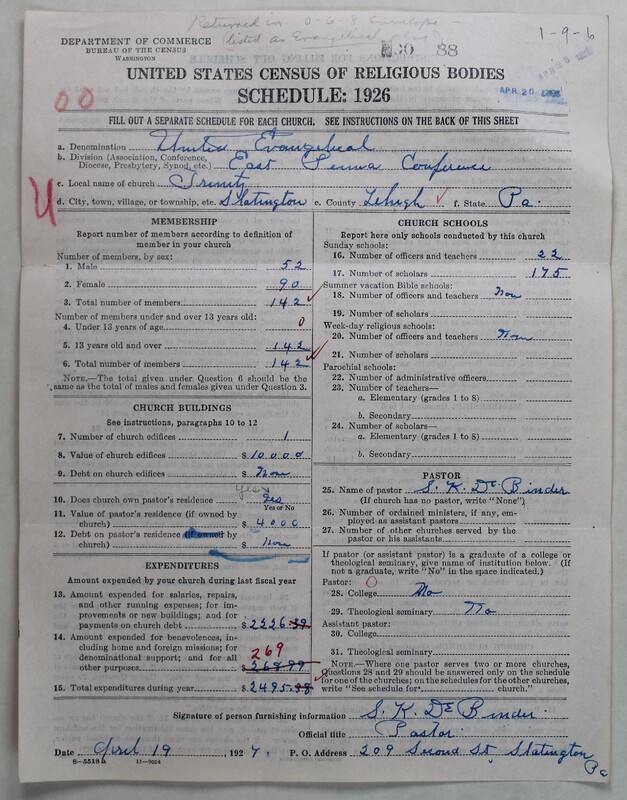 Returned in 0-6-8 Envelope -
(listed as Evangelical
DEPARTMENT OF COMMERCE
BUREAU OF THE CENSUS
WASHINGTON
88
1-9-6
UNITED STATES CENSUS OF RELIGIOUS BODIES
SCHEDULE: 1926
APR 20
00
FILL OUT A SEPARATE SCHEDULE FOR EACH CHURCH. SEE INSTRUCTIONS ON THE BACK OF THIS SHEET
a. Denomination United Evangelical
b. Division (Association, Conference, Diocese, Presbytery, Synod, etc.) East Penna Conference
c. Local name of church Trinity
U
d. City, town, village, or township, etc. Slatington e. County Lehigh ✓ f. State Pa.
MEMBERSHIP
Report number of members according to definition of
member in your church
Number of members, by sex:
1. Male 52
2. Female 90
3. Total number of members 142 ✓
Number of members under and over 13 years old:
4. Under 13 years of age 0
5. 13 years old and over 142
6. Total number of members 142 ✓
NOTE.—The total given under Question 6 should be
same as the total of males and females given under Question 3.
CHURCH BUILDINGS
See instructions, paragraphs 10 to 12
7. Number of church edifices 1
8. Value of church edifices $ 10000
9. Debt on church edifices $ Non
yes
10. Does church own pastor's residence Yes
Yes or No
11. Value of pastor's residence (if owned by
church) $ 4000
12. Debt on pastor's residence (if owned by
church) $ Non
EXPENDITURES
Amount expended by your church during last fiscal year
13. Amount expended for salaries, repairs,
and other running expenses; for im-
provements or new buildings; and for
payments on church debt $ 2226.39
14. Amount expended for benevolences, in-
cluding home and foreign missions; for
denominational support; and for all
other purposes 269
268.99
15. Total expenditures during year $ 2495.38
CHURCH SCHOOLS
Report here only schools conducted by this church
Sunday schools:
16. Number of officers and teachers 22
17. Number of scholars 175
Summer vacation Bible schools:
18. Number of officers and teachers Non
19. Number of scholars
Week-day religious schools:
20. Number of officers and teachers Non
21. Number of scholars
Parochial schools:
22. Number of administrative officers
23. Number of teachers—
a. Elementary (grades 1 to 8)
b. Secondary
24. Number of scholars—
a. Elementary (grades 1 to 8)
b. Secondary
PASTOR
25. Name of pastor S. K. De Binder
(If church has no pastor, write "None")
26. Number of ordained ministers, if any, em-
ployed as assistant pastors
27. Number of other churches served by the
pastor or his assistants
If pastor (or assistant pastor) is a graduate of a college or
theological seminary, give name of institution below. (If
not a graduate, write "No" in the space indicated.)
Pastor: 0
28. College No
29. Theological seminary No
Assistant pastor:
30. College
31. Theological seminary
NOTE.—Where one pastor serves two or more churches,
Questions 28 and 29 should be answered only on the schedule
for one of the churches; on the schedules for the other churches,
write "See schedule for church."
Signature of person furnishing information S. K. De Binder
Official title Pastor
Date April 19 1927. P. O. Address 209 Second St, Slatington Pa
8-5518a 11-9024